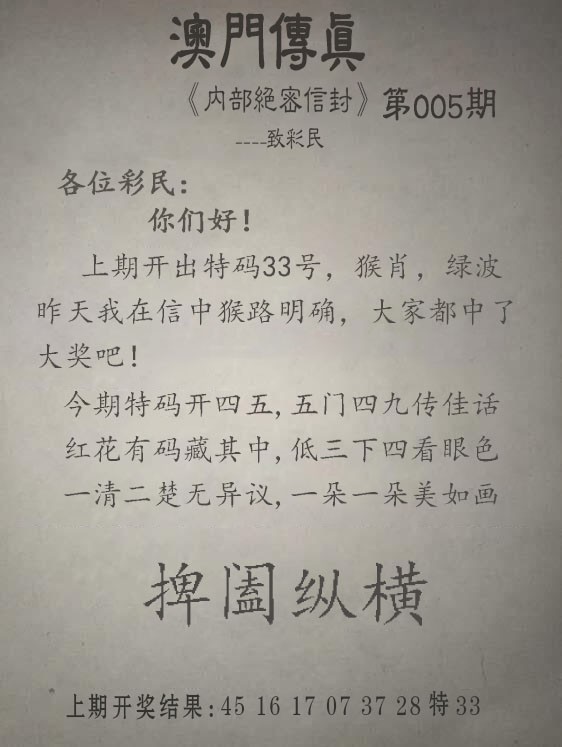 澳門傳眞
《内部絕密信封》第005期
----致彩民
各位彩民：
你们好！
上期开出特码33号，猴肖，绿波
昨天我在信中猴路明确，大家都中了
大奖吧！
今期特码开四五,五门四九传佳话
红花有码藏其中,低三下四看眼色
一清二楚无异议,一朵一朵美如画
捭阖纵横
上期开奖结果:45 16 17 07 37 28 特 33